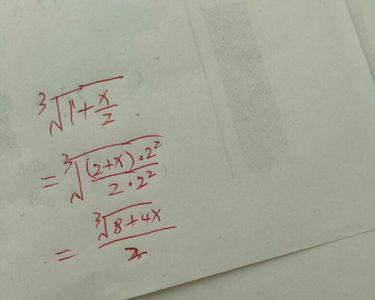 ∛(1+x/2)
=∛((2+x)·2²/(2·2²))
=∛(8+4x)/2